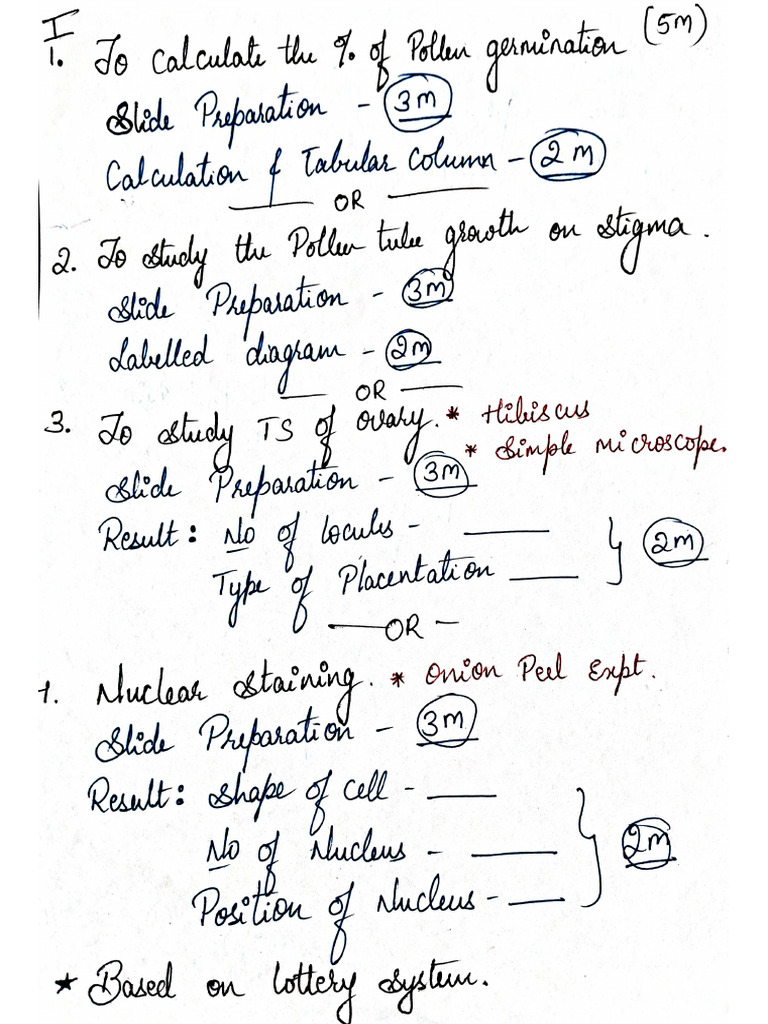 I
1. To Calculate the % of Pollen germination (5m)
Slide Preparation - 3m
Calculation & Tabular Column - 2m
OR
2. To study the Pollen tube growth on stigma.
Slide Preparation - 3m
Labelled diagram - 2m
OR
3. To study TS of ovary. * Hibiscus
* Simple microscope.
Slide Preparation - 3m
Result: No of locules -
Type of Placentation
2m
OR
1. Nuclear staining. * Onion Peel Expt.
Slide Preparation - 3m
Result: shape of cell -
No of Nucleus -
2m
Position of Nucleus -
* Based on lottery system.